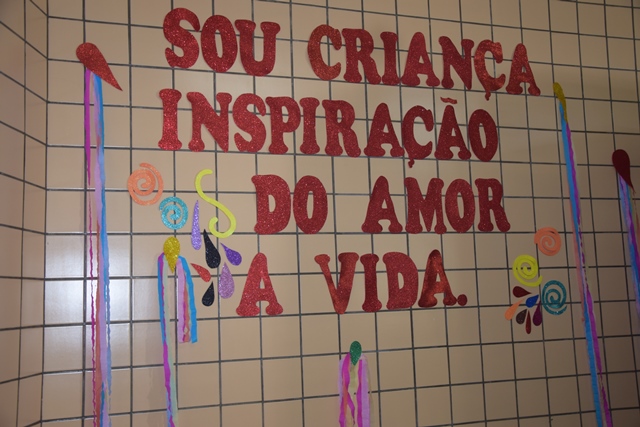 SOU CRIANÇA
INSPIRAÇÃO
DO AMOR
A VIDA.